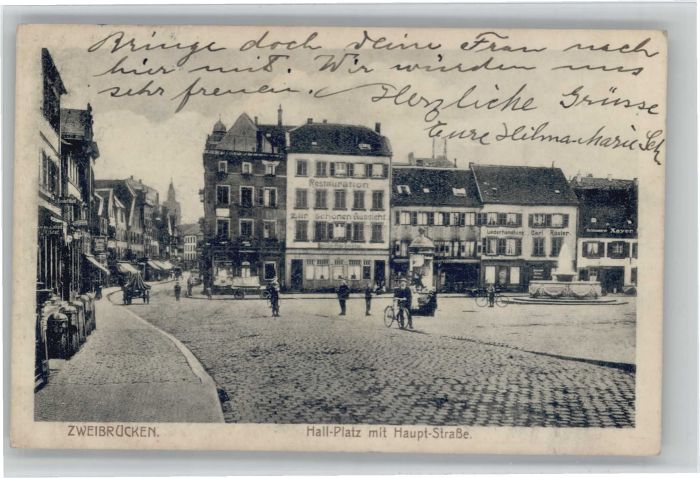 Bringe doch deine Frau nach
hier mit. Wir würden uns
sehr freuen. Herzliche Grüsse
Eure Hilma Marie
Restauration
zur schönen Aussicht
Lederhandlung Carl Rösler
Mayer
ZWEIBRÜCKEN. Hall-Platz mit Haupt-Straße.